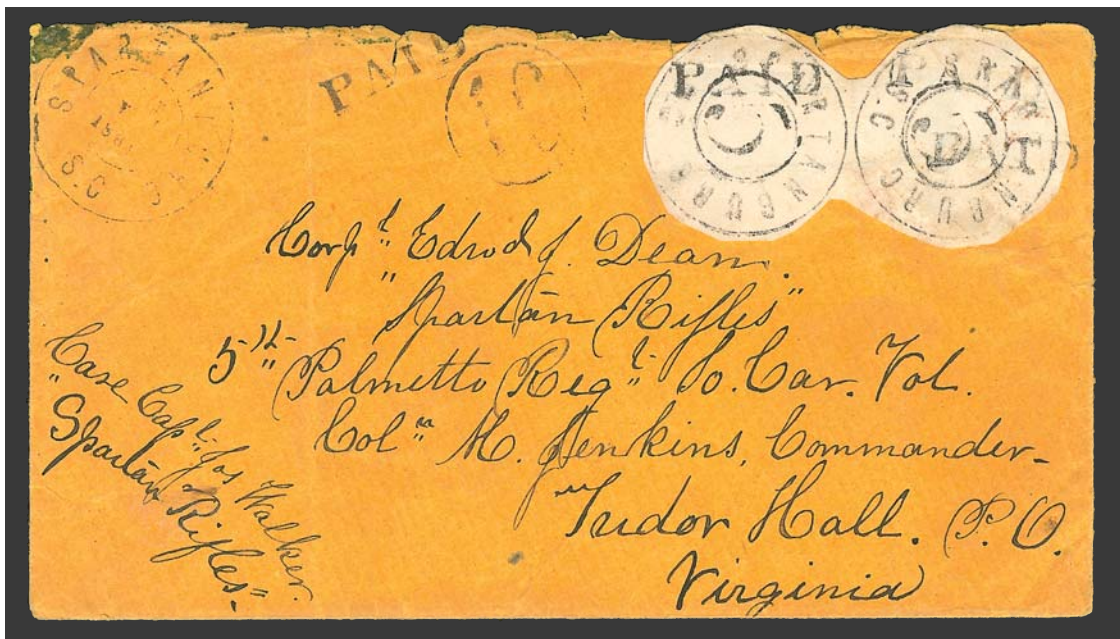 SPARTANBURG S.C.
PAID
10
PAID
SPARTANBURG S.C.
5
PAID
SPARTANBURG S.C.
5
PAID
Corpl. Edwd J. Dean.
"Spartan Rifles"
5th Palmetto Regt. So. Car. Vol.
Col. M. Jenkins, Commander-
Tudor Hall. P.O.
Virginia
Care Capt. Jos Walker.
"Spartan Rifles"